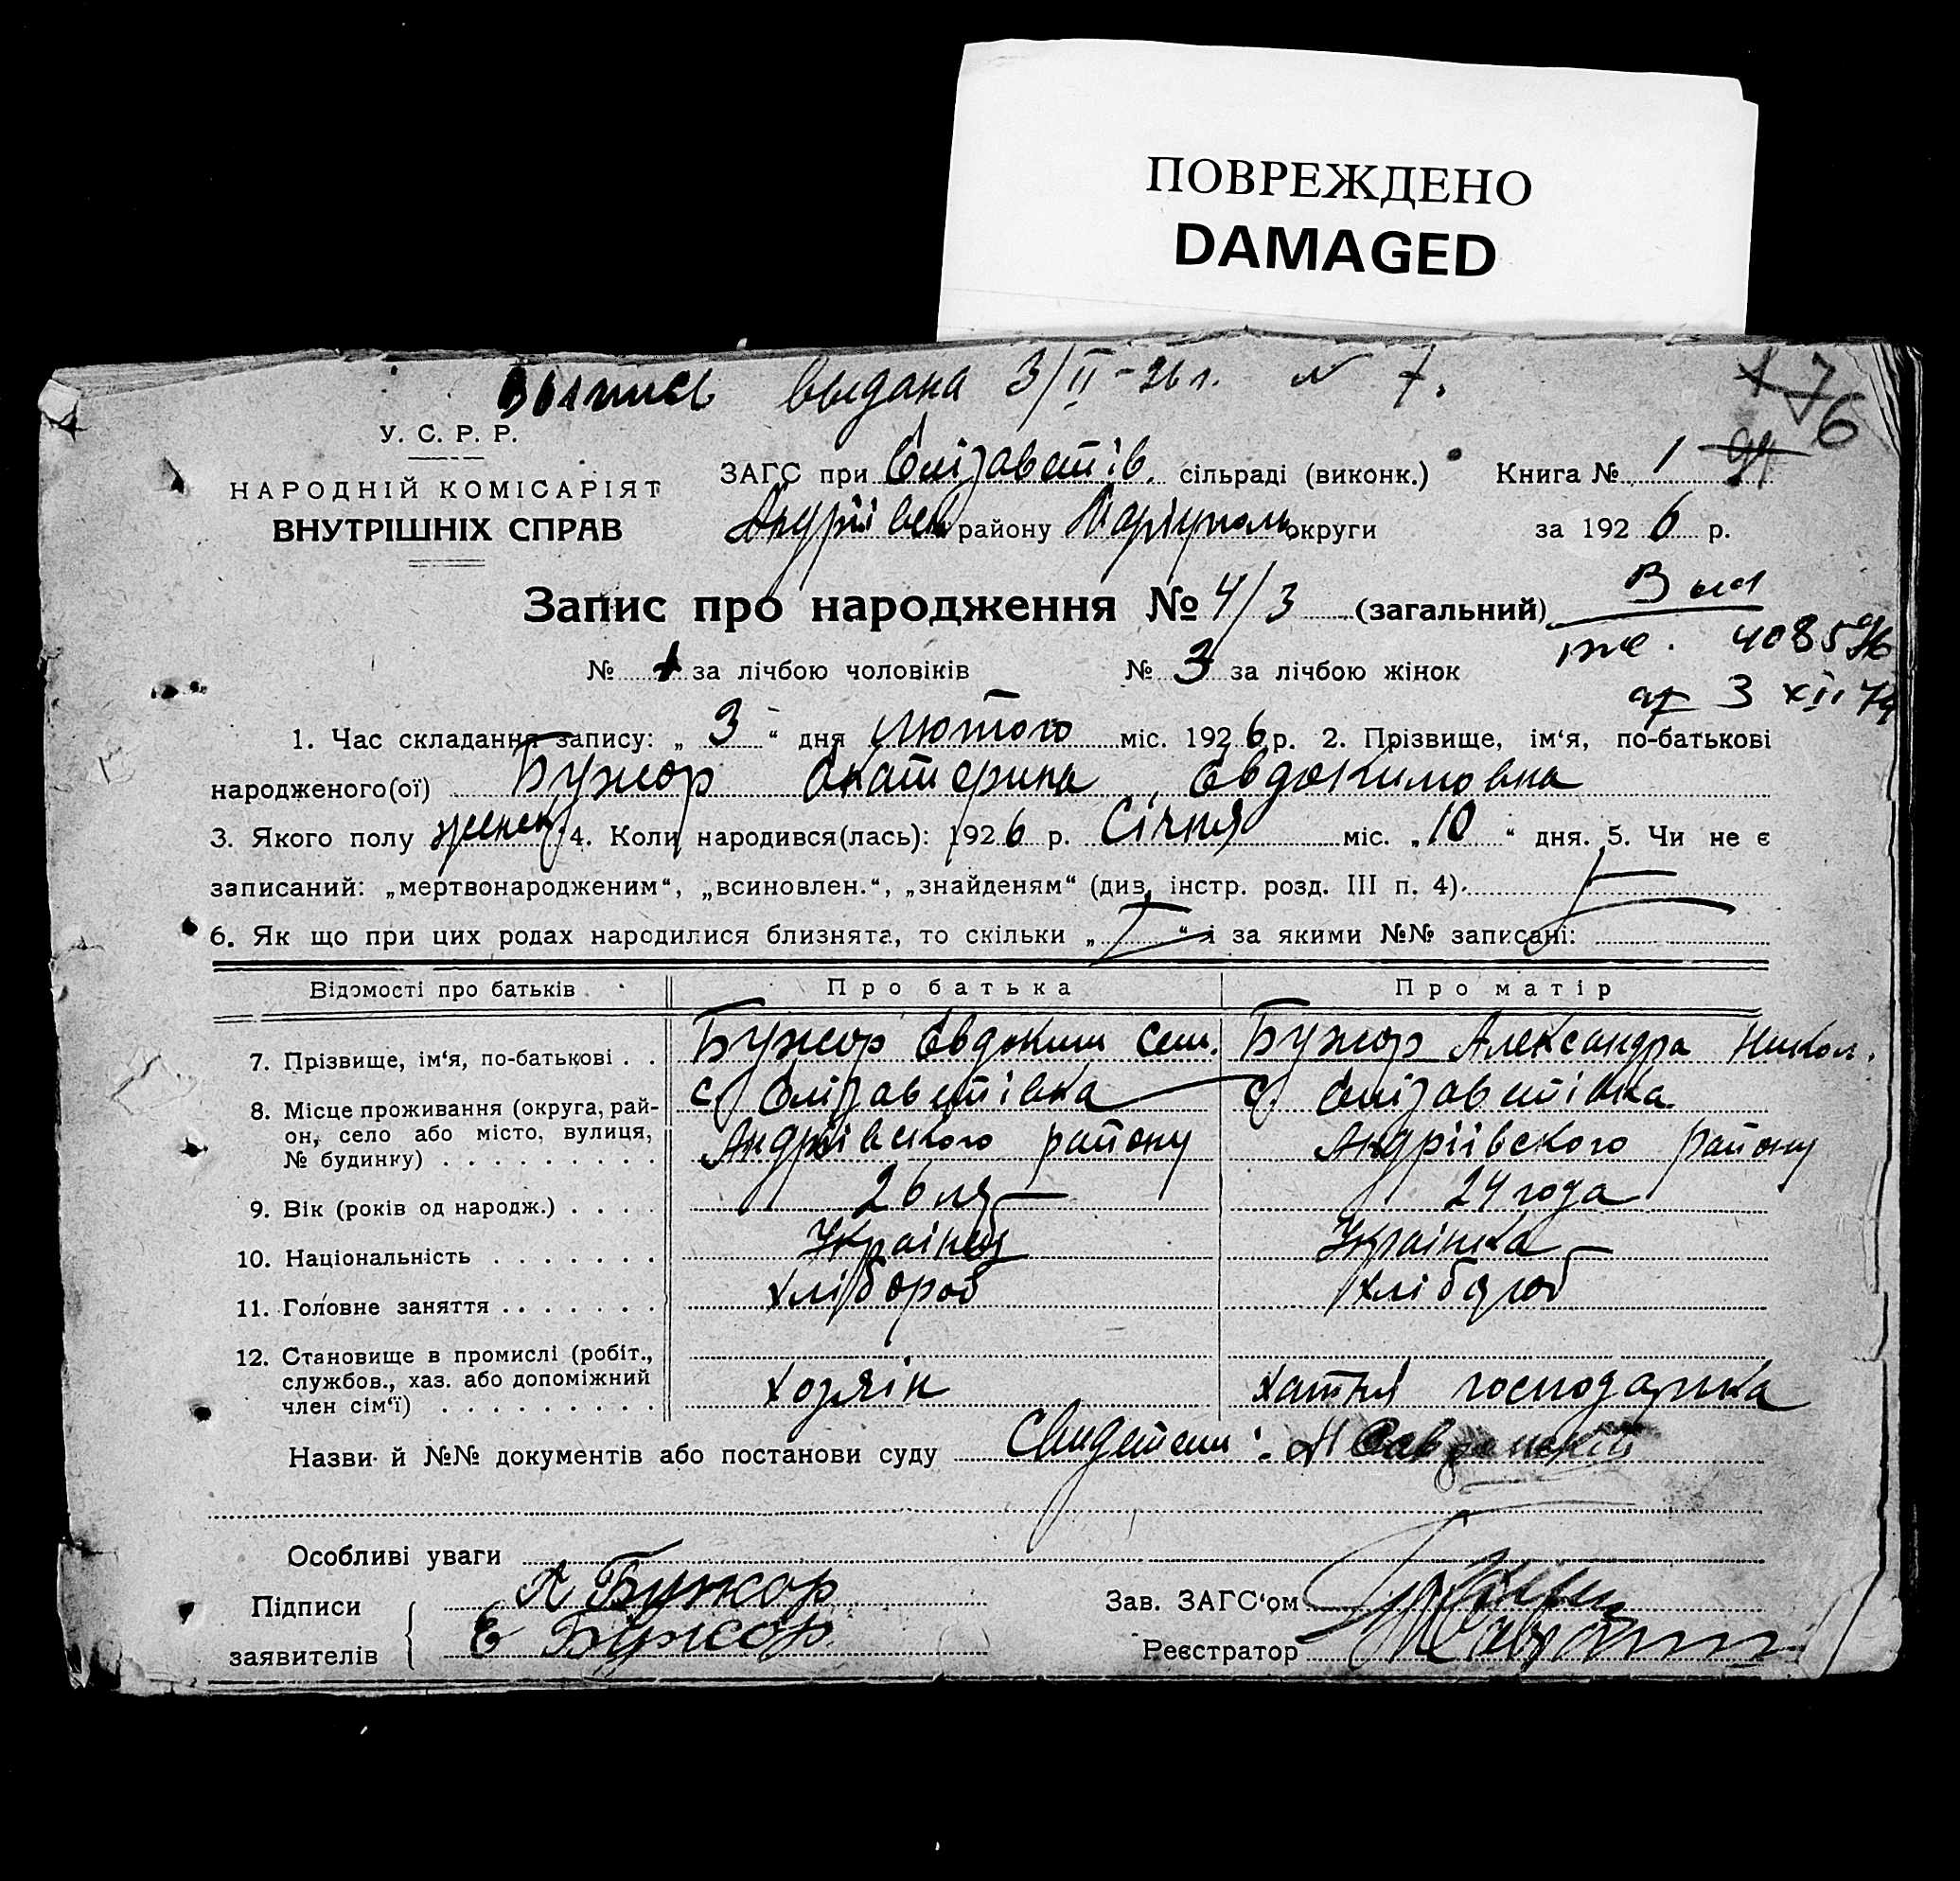 ПОВРЕЖДЕНО
DAMAGED
Выпись выдана 3/II-26 г. № 7.
76
У. С. Р. Р.
НАРОДНІЙ КОМІСАРІЯТ
ВНУТРІШНІХ СПРАВ
ЗАГС при Єлізаветів. сільраді (виконк.) Книга № 1
Андріївськ району Маріуполь округи за 1926 р.
Запис про народження № 4/3 (загальний)
№ за лічбою чоловіків № 3 за лічбою жінок
3 XII 74
1. Час складання запису: „3“ дня Лютого міс. 1926 р. 2. Прізвище, ім‘я, по-батькові
народженого(ої) Бужор Єкатерина Євдокимовна
3. Якого полу женск 4. Коли народився(лась): 1926 р. Січня міс. „10“ дня. 5. Чи не є
записаний: „мертвонародженим“, „всиновлен.“, „знайденям“ (див. інстр. розд. III п. 4).
6. Як що при цих родах народилися близнята, то скільки „ “ і за якими №№ записані:
Відомості про батьків Про батька Про матір
7. Прізвище, ім‘я, по-батькові . . Бужор Євдоким Сем. Бужор Александра Никол.
8. Місце проживання (округа, рай-
он, село або місто, вулиця,
№ будинку) . . . . . . . . . с. Єлізаветівка Андріівского району с. Єлізаветівка Андріівского району
9. Вік (років од народж.) . . . . 26 24 года
10. Національність . . . . . . . Українец Українка
11. Головне заняття . . . . . . . хлібороб хлібороб
12. Становище в промислі (робіт.,
службов., хаз. або допоміжний
член сім‘ї) . . . . . . . . . хозяін хатня господарка
Назви й №№ документів або постанови суду Свидетели:
Особливі уваги
Підписи А Бужор Зав. ЗАГС‘ом
заявителів Е Бужор Реєстратор